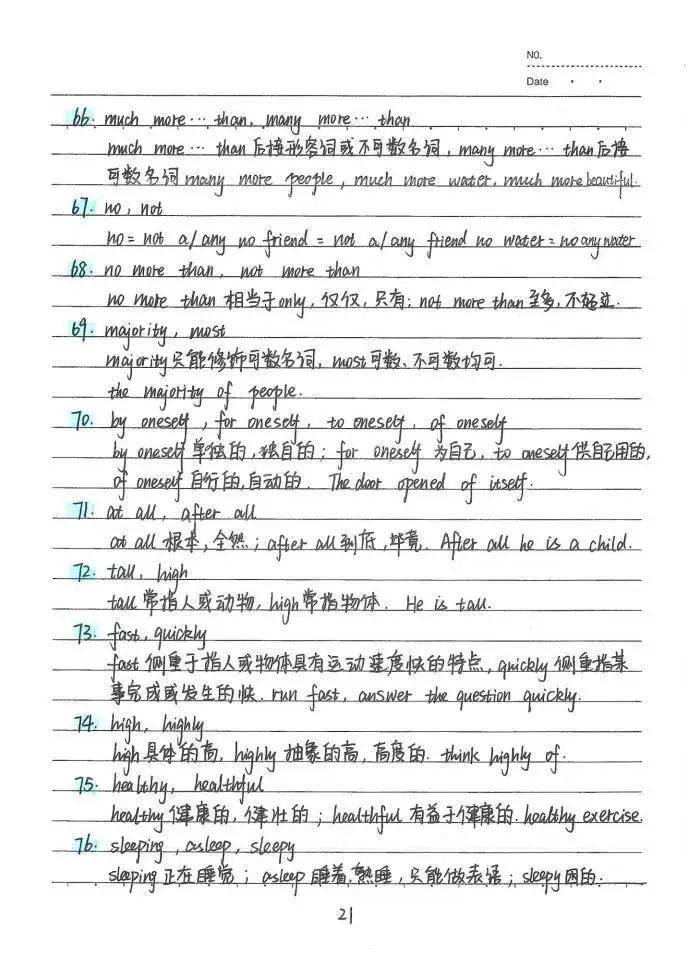 NO.
Date
66. much more … than, many more … than
much more … than 后接形容词或不可数名词, many more … than 后接
可数名词 many more people, much more water, much more beautiful.
67. no, not
no = not a / any no friend = not a / any friend no water = no any water
68. no more than, not more than
no more than 相当于 only, 仅仅, 只有; not more than 至多, 不超过.
69. majority, most
majority 只能修饰可数名词, most 可数、不可数均可.
the majority of people.
70. by oneself, for oneself, to oneself, of oneself
by oneself 单独的, 独自的; for oneself 为自己, to oneself 供自己用的,
of oneself 自行的, 自动的. The door opened of itself.
71. at all, after all
at all 根本, 全然; after all 到底, 毕竟. After all he is a child.
72. tall, high
tall 常指人或动物, high 常指物体. He is tall.
73. fast, quickly
fast 侧重于指人或物体具有运动速度快的特点, quickly 侧重指某
事完成或发生的快. run fast, answer the question quickly.
74. high, highly
high 具体的高, highly 抽象的高, 高度的. think highly of.
75. healthy, healthful
healthy 健康的, 健壮的; healthful 有益于健康的. healthy exercise.
76. sleeping, asleep, sleepy
sleeping 正在睡觉; asleep 睡着, 熟睡, 只能做表语; sleepy 困的.
21